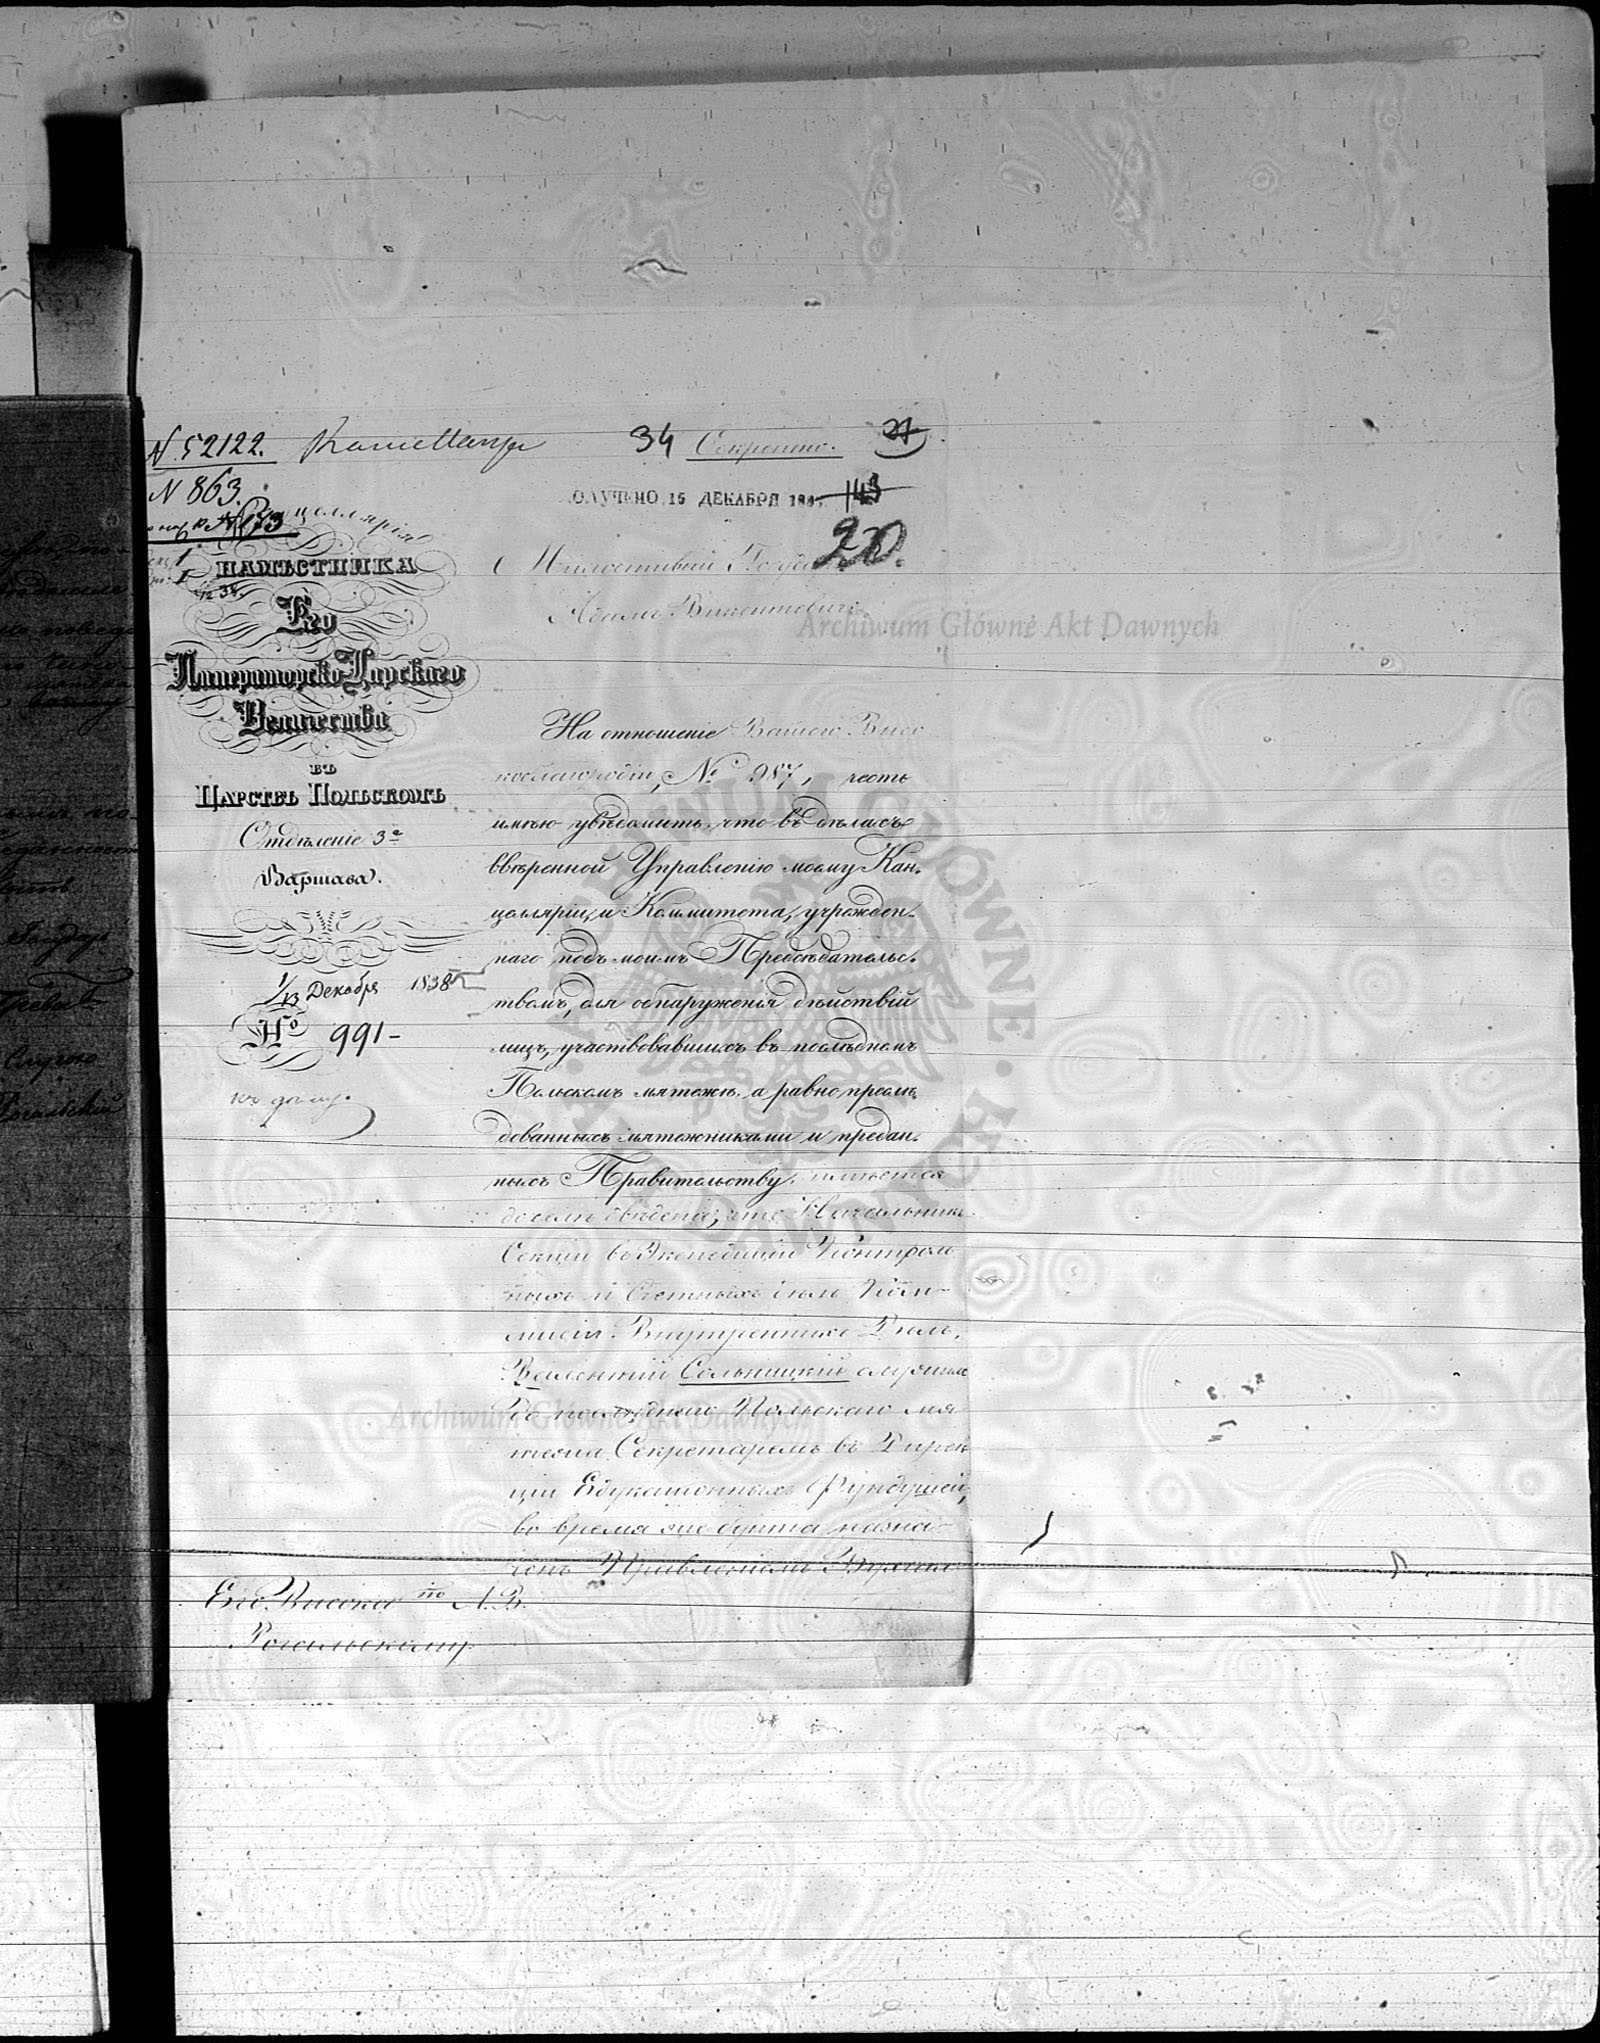 N 52122.
34 Секретно. 21
N 863.
ПОЛУЧЕНО 15 ДЕКАБРЯ 143
N 173
20.
Канцелярія
НАМѢСТНИКА
Его
Императорско-Царскаго
Величества
въ
Царствѣ Польскомъ
Отдѣленіе 3е
Варшава.
1/13 Декабря 1838
No 991-
Милостивый Государь
Адамъ Викентовичъ
На отношеніе Вашего Высо
коблагородія, № 987, честь
имѣю увѣдомить, что въ дѣлахъ
ввѣренной Управленію моему Кан-
целяріи, и Коммитета, учрежден-
наго подъ моимъ Предсѣдательс-
твомъ, для обнаруженія дѣйствій
лицъ, участвовавшихъ въ послѣднемъ
Польскомъ мятежѣ, а равно преслѣ-
дованныхъ мятежниками и предан-
ныхъ Правительству, имѣется
что Начальникъ
Секціи въ Экспедиціи Контроль
ныхъ и Счетныхъ дѣлъ Ком-
мисіи Внутреннихъ Дѣлъ,
Валентій Сольницкій служилъ
до послѣдняго Польскаго мя
тежа Секретаремъ въ Дирек
ціи Едукаціонныхъ Фундушей,
во время же бунта назна-
ченъ Правленіемъ
Его Высоко А. В.
Рогальскому
Archiwum Główne Akt Dawnych
Archiwum Główne Akt Dawnych